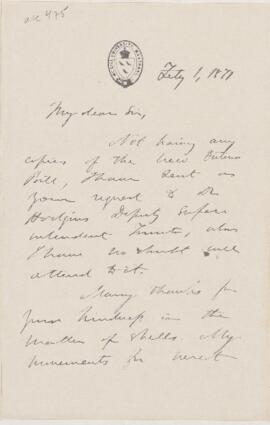 Feby 1, 1871
My dear Sir,
Not having any
copies of the new
Bill, I have sent on
your request to Dr
Hodgins Deputy Super
intendent Toronto, who
I have no doubt will
attend to it.
Many thanks for
your kindness in the
matter of shells. My
movements for next